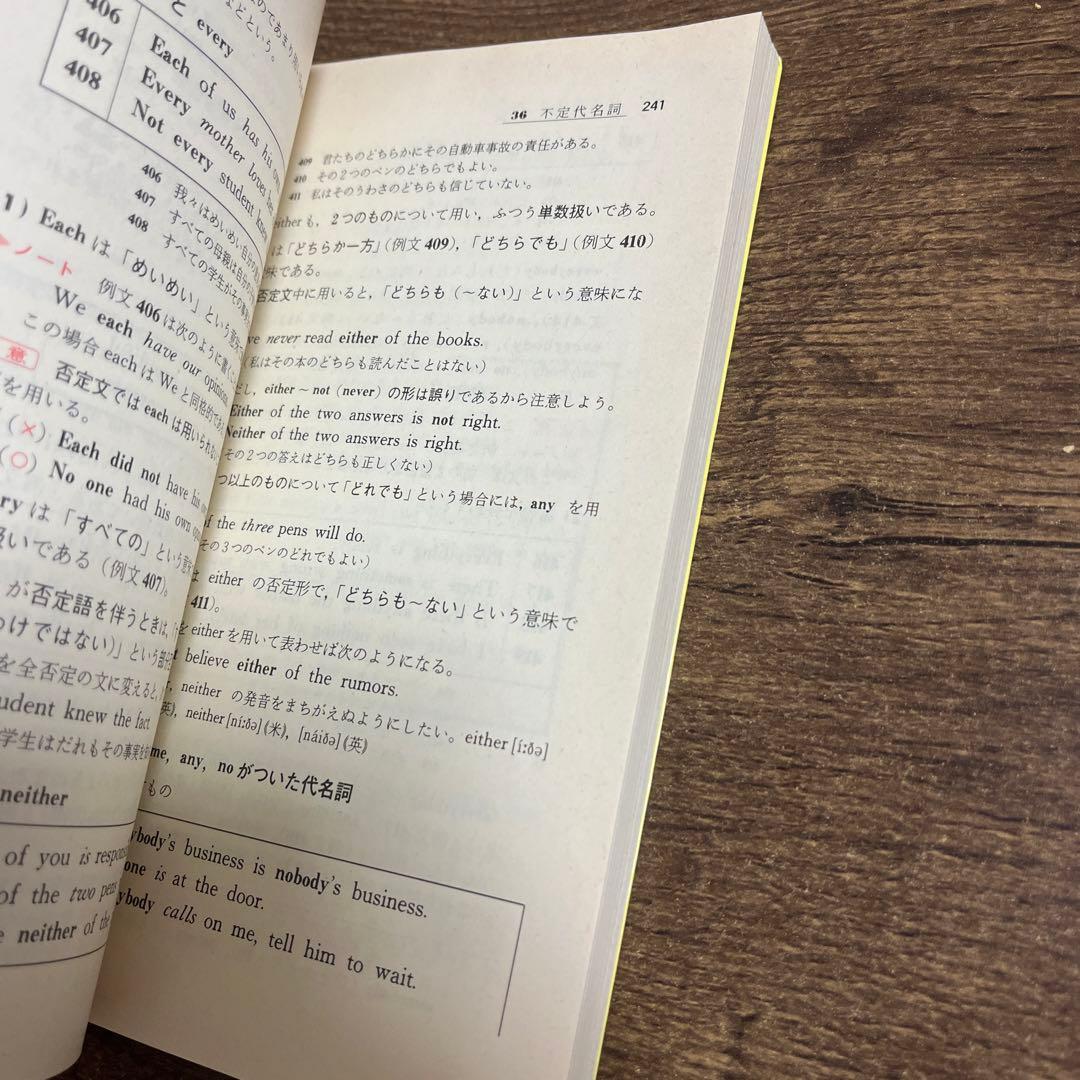 と every
406
407
408
Each of us has his own
Every mother loves her
Not every student knew
406 我々はめいめい自分の
407 すべての母親は自分の
408 すべての学生がその事実
1) Each は「めいめい」という意
ノート 例文406は次のように書く
We each have our opinions.
この場合 each は We と同格的であ
意 否定文では each は用いられない
を用いる。
(×) Each did not have his own
(○) No one had his own
ry は「すべての」という意
扱いである（例文407）。
が否定語を伴うときは，
っけではない）」という部分
を全否定の文に変えると，
udent knew the fact.
学生はだれもその事実を
neither
of you is respons
of the two pens
e neither of the
36 不定代名詞 241
409 君たちのどちらかにその自動車事故の責任がある。
410 その2つのペンのどちらでもよい。
411 私はそのうわさのどちらも信じていない。
either も，2つのものについて用い，ふつう単数扱いである。
は「どちらか一方」（例文409），「どちらでも」（例文410）
味である。
否定文中に用いると，「どちらも（～ない）」という意味にな
ve never read either of the books.
私はその本のどちらも読んだことはない）
だし，either ~ not (never) の形は誤りであるから注意しよう。
Either of the two answers is not right.
Neither of the two answers is right.
その2つの答えはどちらも正しくない）
つ以上のものについて「どれでも」という場合には，any を用
of the three pens will do.
その3つのペンのどれでもよい）
は either の否定形で，「どちらも～ない」という意味で
411）。
を either を用いて表わせば次のようになる。
t believe either of the rumors.
r，neither の発音をまちがえぬようにしたい。either [íːðə]
英），neither [níːðə]（米），[náiðə]（英）
me, any, no がついた代名詞
もの
ybody's business is nobody's business.
one is at the door.
ybody calls on me, tell him to wait.